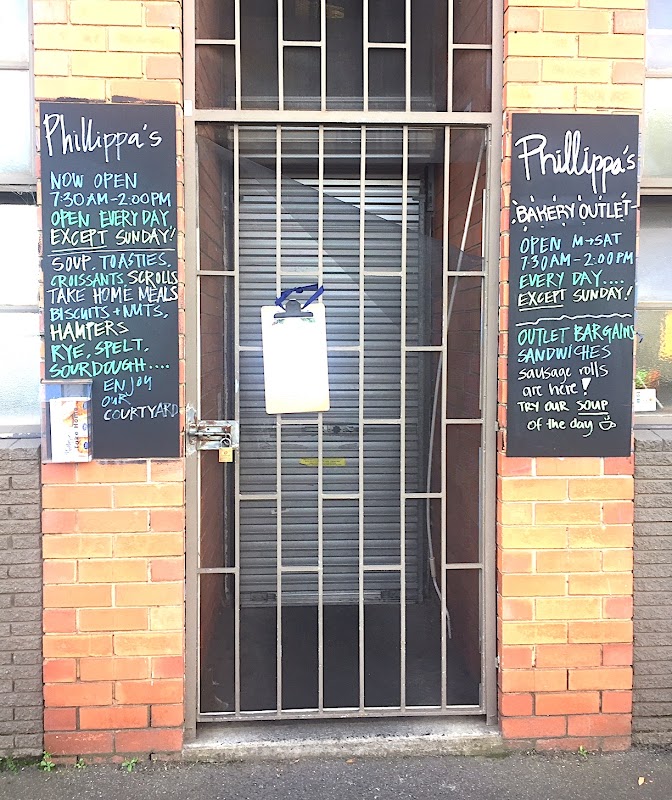 Phillippa's
NOW OPEN
7:30AM-2:00PM
OPEN EVERY DAY
EXCEPT SUNDAY!
SOUP, TOASTIES,
CROISSANTS SCROLLS
TAKE HOME MEALS
BISCUITS + NUTS,
HAMPERS
RYE, SPELT,
SOURDOUGH....
ENJOY
OUR
COURTYARD
Phillippa's
BAKERY OUTLET
OPEN M→SAT
7:30AM-2:00PM
EVERY DAY....
EXCEPT SUNDAY!
OUTLET BARGAINS
SANDWICHES
sausage rolls
are here!
TRY our SOUP
of the day